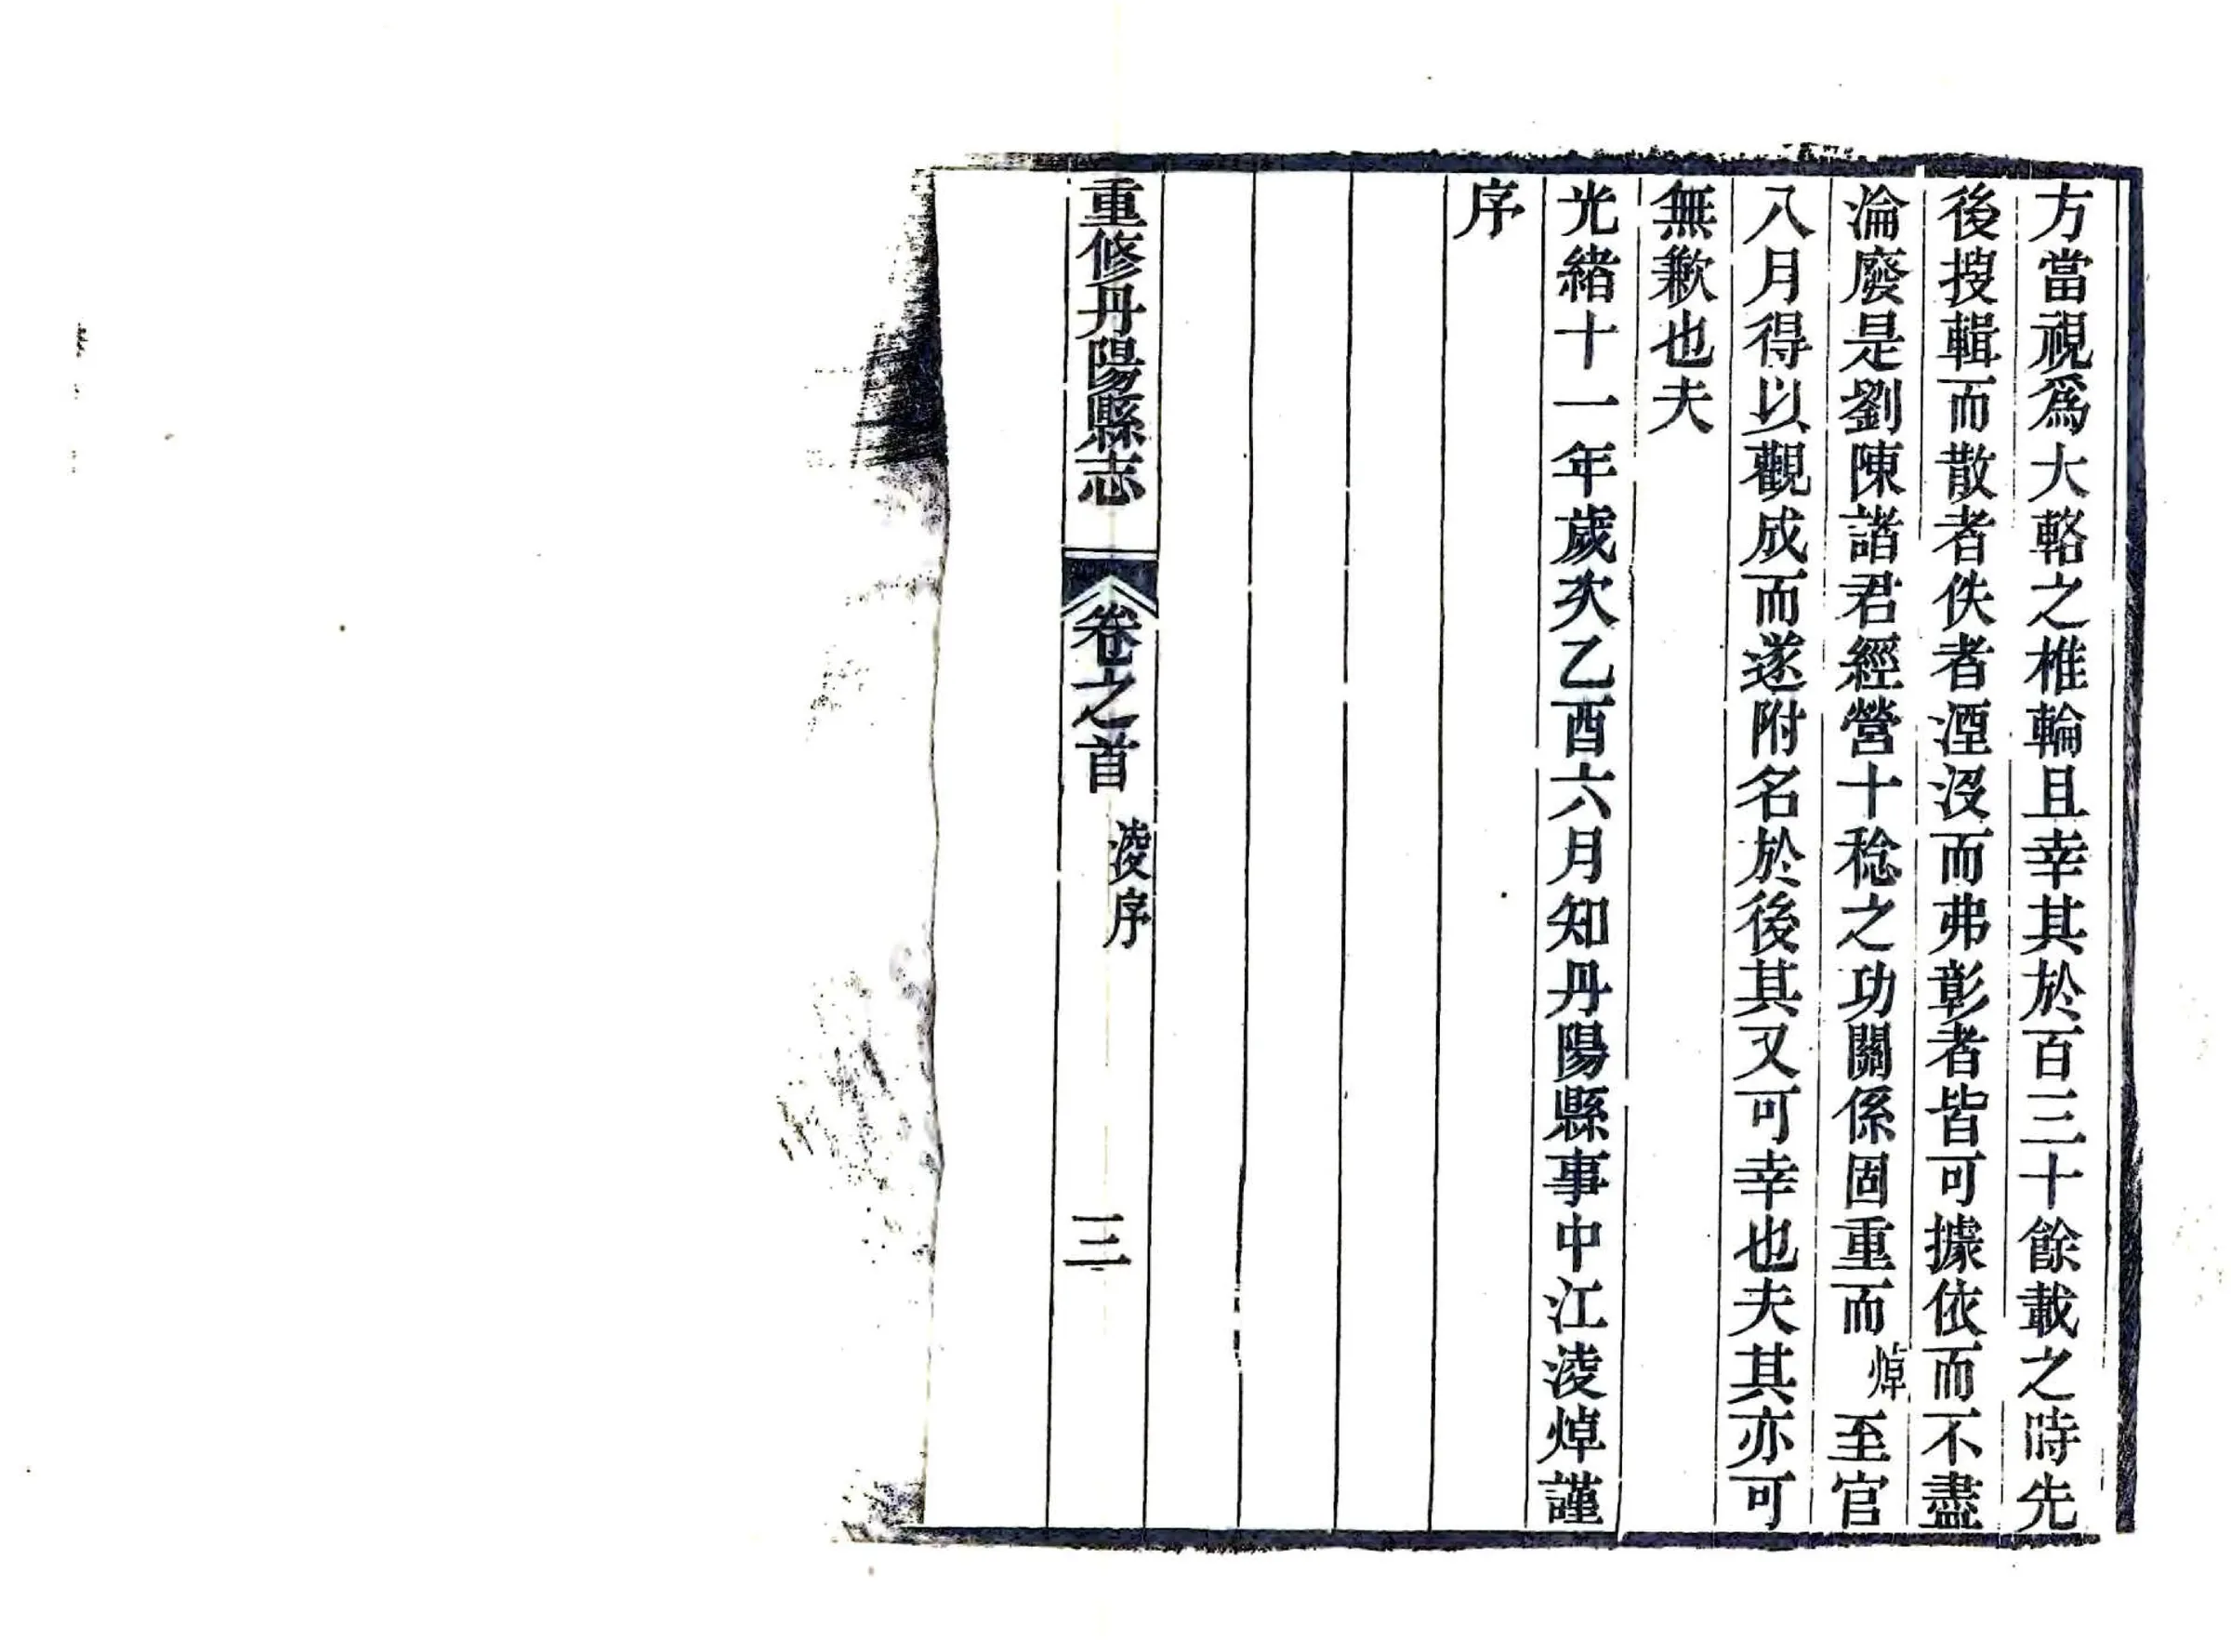 方當視爲大輅之椎輪且幸其於百三十餘載之時先
後搜輯而散者佚者湮沒而弗彰者皆可據依而不盡
淪廢是劉陳諸君經營十稔之功關係固重而焯至官
八月得以觀成而遂附名於後其又可幸也夫其亦可
無歉也夫
光緒十一年歲次乙酉六月知丹陽縣事中江淩焯謹
序
重修丹陽縣志 卷之首 淩序 三